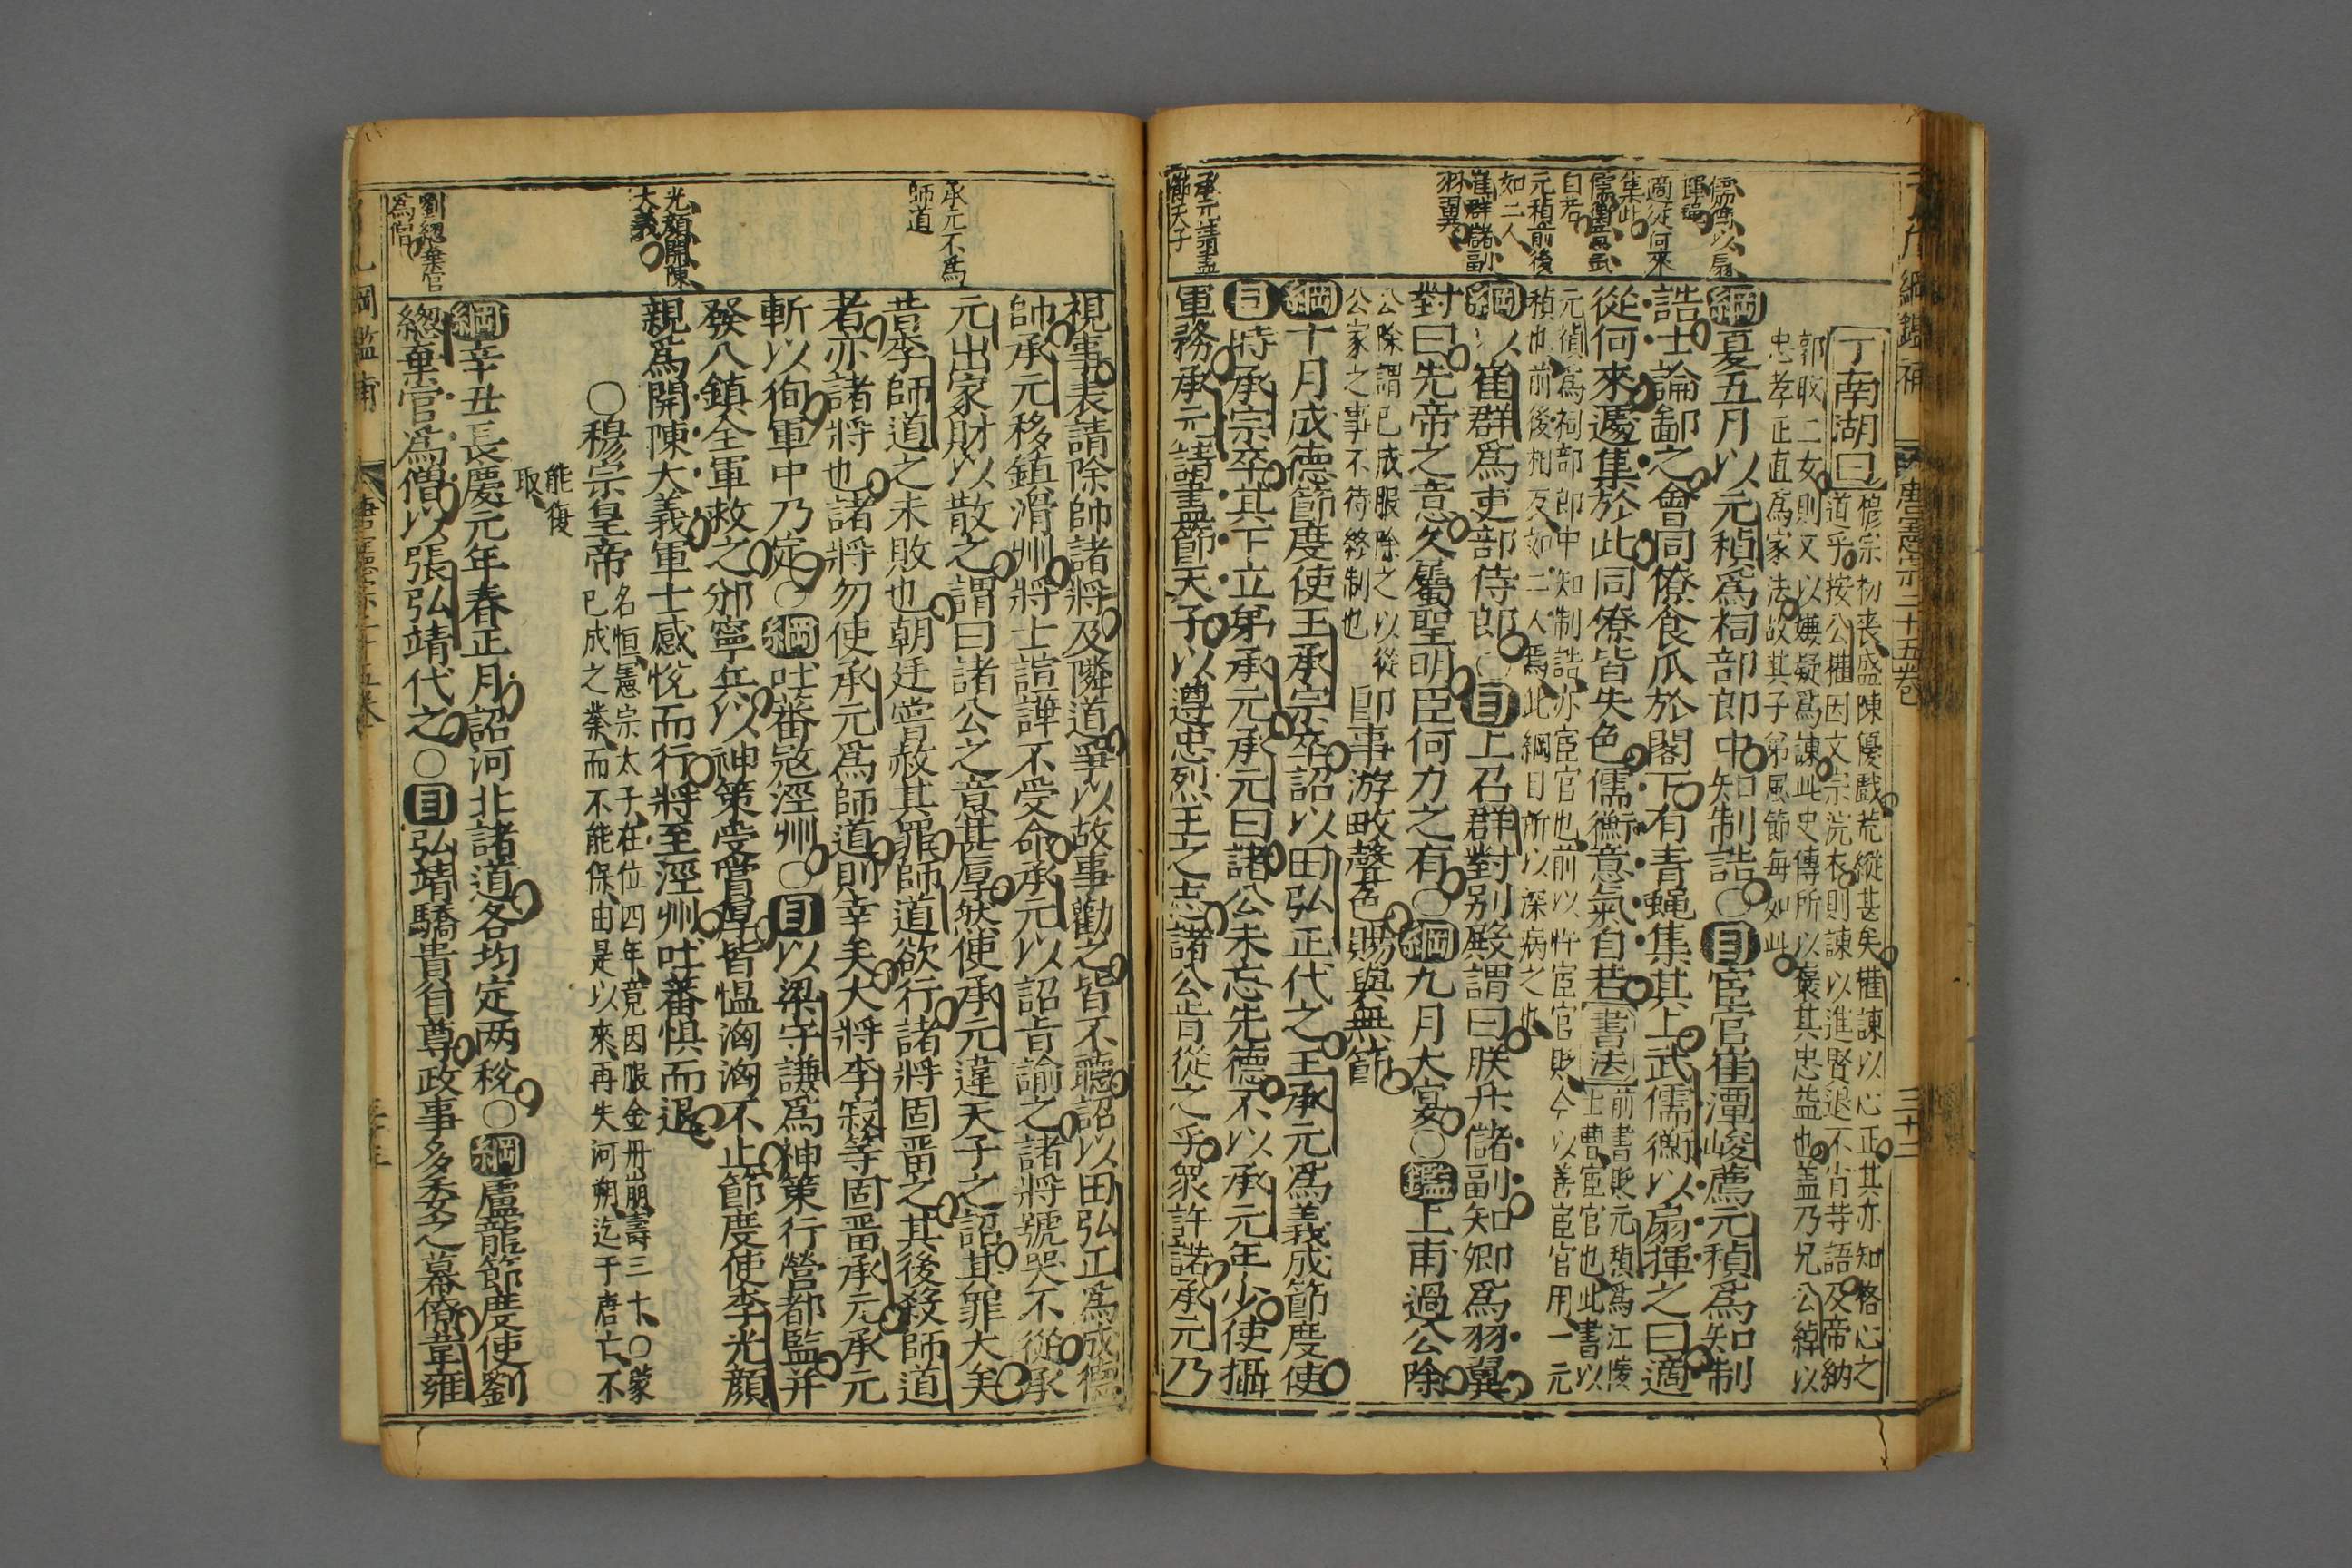 唐憲宗二十五卷
三十二
儒衡以扇
揮蠅
適從何來
集此
儒衡意氣
自若
元稹前後
如二人
崔群儲副
羽翼
承元請盡
節天子
丁南湖曰
穆宗初喪盛陳優戲荒縱甚矣權諫以心正其亦知格心之
道乎按公權因文宗浣衣則諫以進賢退不肖等語及帝納
郭旼二女則又以嫌疑爲諫此史傳所以褒其忠益也蓋乃兄公綽以
忠孝正直爲家法故其子弟風節每如此
綱夏五月以元稹爲祠部郎中知制誥○目宦官崔潭峻薦元稹爲知制
誥士論鄙之會同僚食瓜於閣下有青蠅集其上武儒衡以扇揮之曰適
從何來遽集於此同僚皆失色儒衡意氣自若書法
前書貶元稹爲江陵
士曹宦官也此書以
元稹爲祠部郎中知制誥亦宦官也前以忤宦官貶今以善宦官用一元
稹也前後相反如二人焉此綱目所以深病之也
綱以崔群爲吏部侍郎○目上召群對別殿謂曰朕升儲副知卿爲羽翼
對曰先帝之意久屬聖明臣何力之有○綱九月大宴○鑑上甫過公除
公除謂已成服除之以從
公家之事不待終制也
卽事游畋聲色賜與無節
綱十月成德節度使王承宗卒詔以田弘正代之王承元爲義成節度使
目時承宗卒其下立弟承元承元曰諸公未忘先德不以承元年少使攝
軍務承元請盡節天子以遵忠烈王之志諸公肯從之乎衆許諾承元乃
承元不爲
師道
光顔開陳
大義
劉總棄官
爲僧
視事表請除帥諸將及隣道爭以故事勸之皆不聽詔以田弘正爲成德
帥承元移鎮滑州將士諠譁不受命承元以詔旨諭之諸將號哭不從承
元出家財以散之謂曰諸公之意甚厚然使承元違天子之詔其罪大矣
昔李師道之未敗也朝廷嘗赦其罪師道欲行諸將固畱之其後殺師道
者亦諸將也諸將勿使承元爲師道則幸矣大將李寂等固畱承元承元
斬以徇軍中乃定○綱吐蕃寇涇州○目以梁守謙爲神策行營都監并
發八鎮全軍救之邠寧兵以神策受賞厚皆慍洶洶不止節度使李光顔
親爲開陳大義軍士感悅而行將至涇州吐蕃懼而退
○穆宗皇帝
名恒憲宗太子在位四年竟因服金丹崩壽三十○蒙
已成之業而不能保由是以來再失河朔迄于唐亡不
能復
取
綱辛丑長慶元年春正月詔河北諸道各均定两稅○綱盧龍節度使劉
總棄官爲僧以張弘靖代之○目弘靖驕貴自尊政事多委之幕僚韋雍
唐憲宗二十五卷
三十三